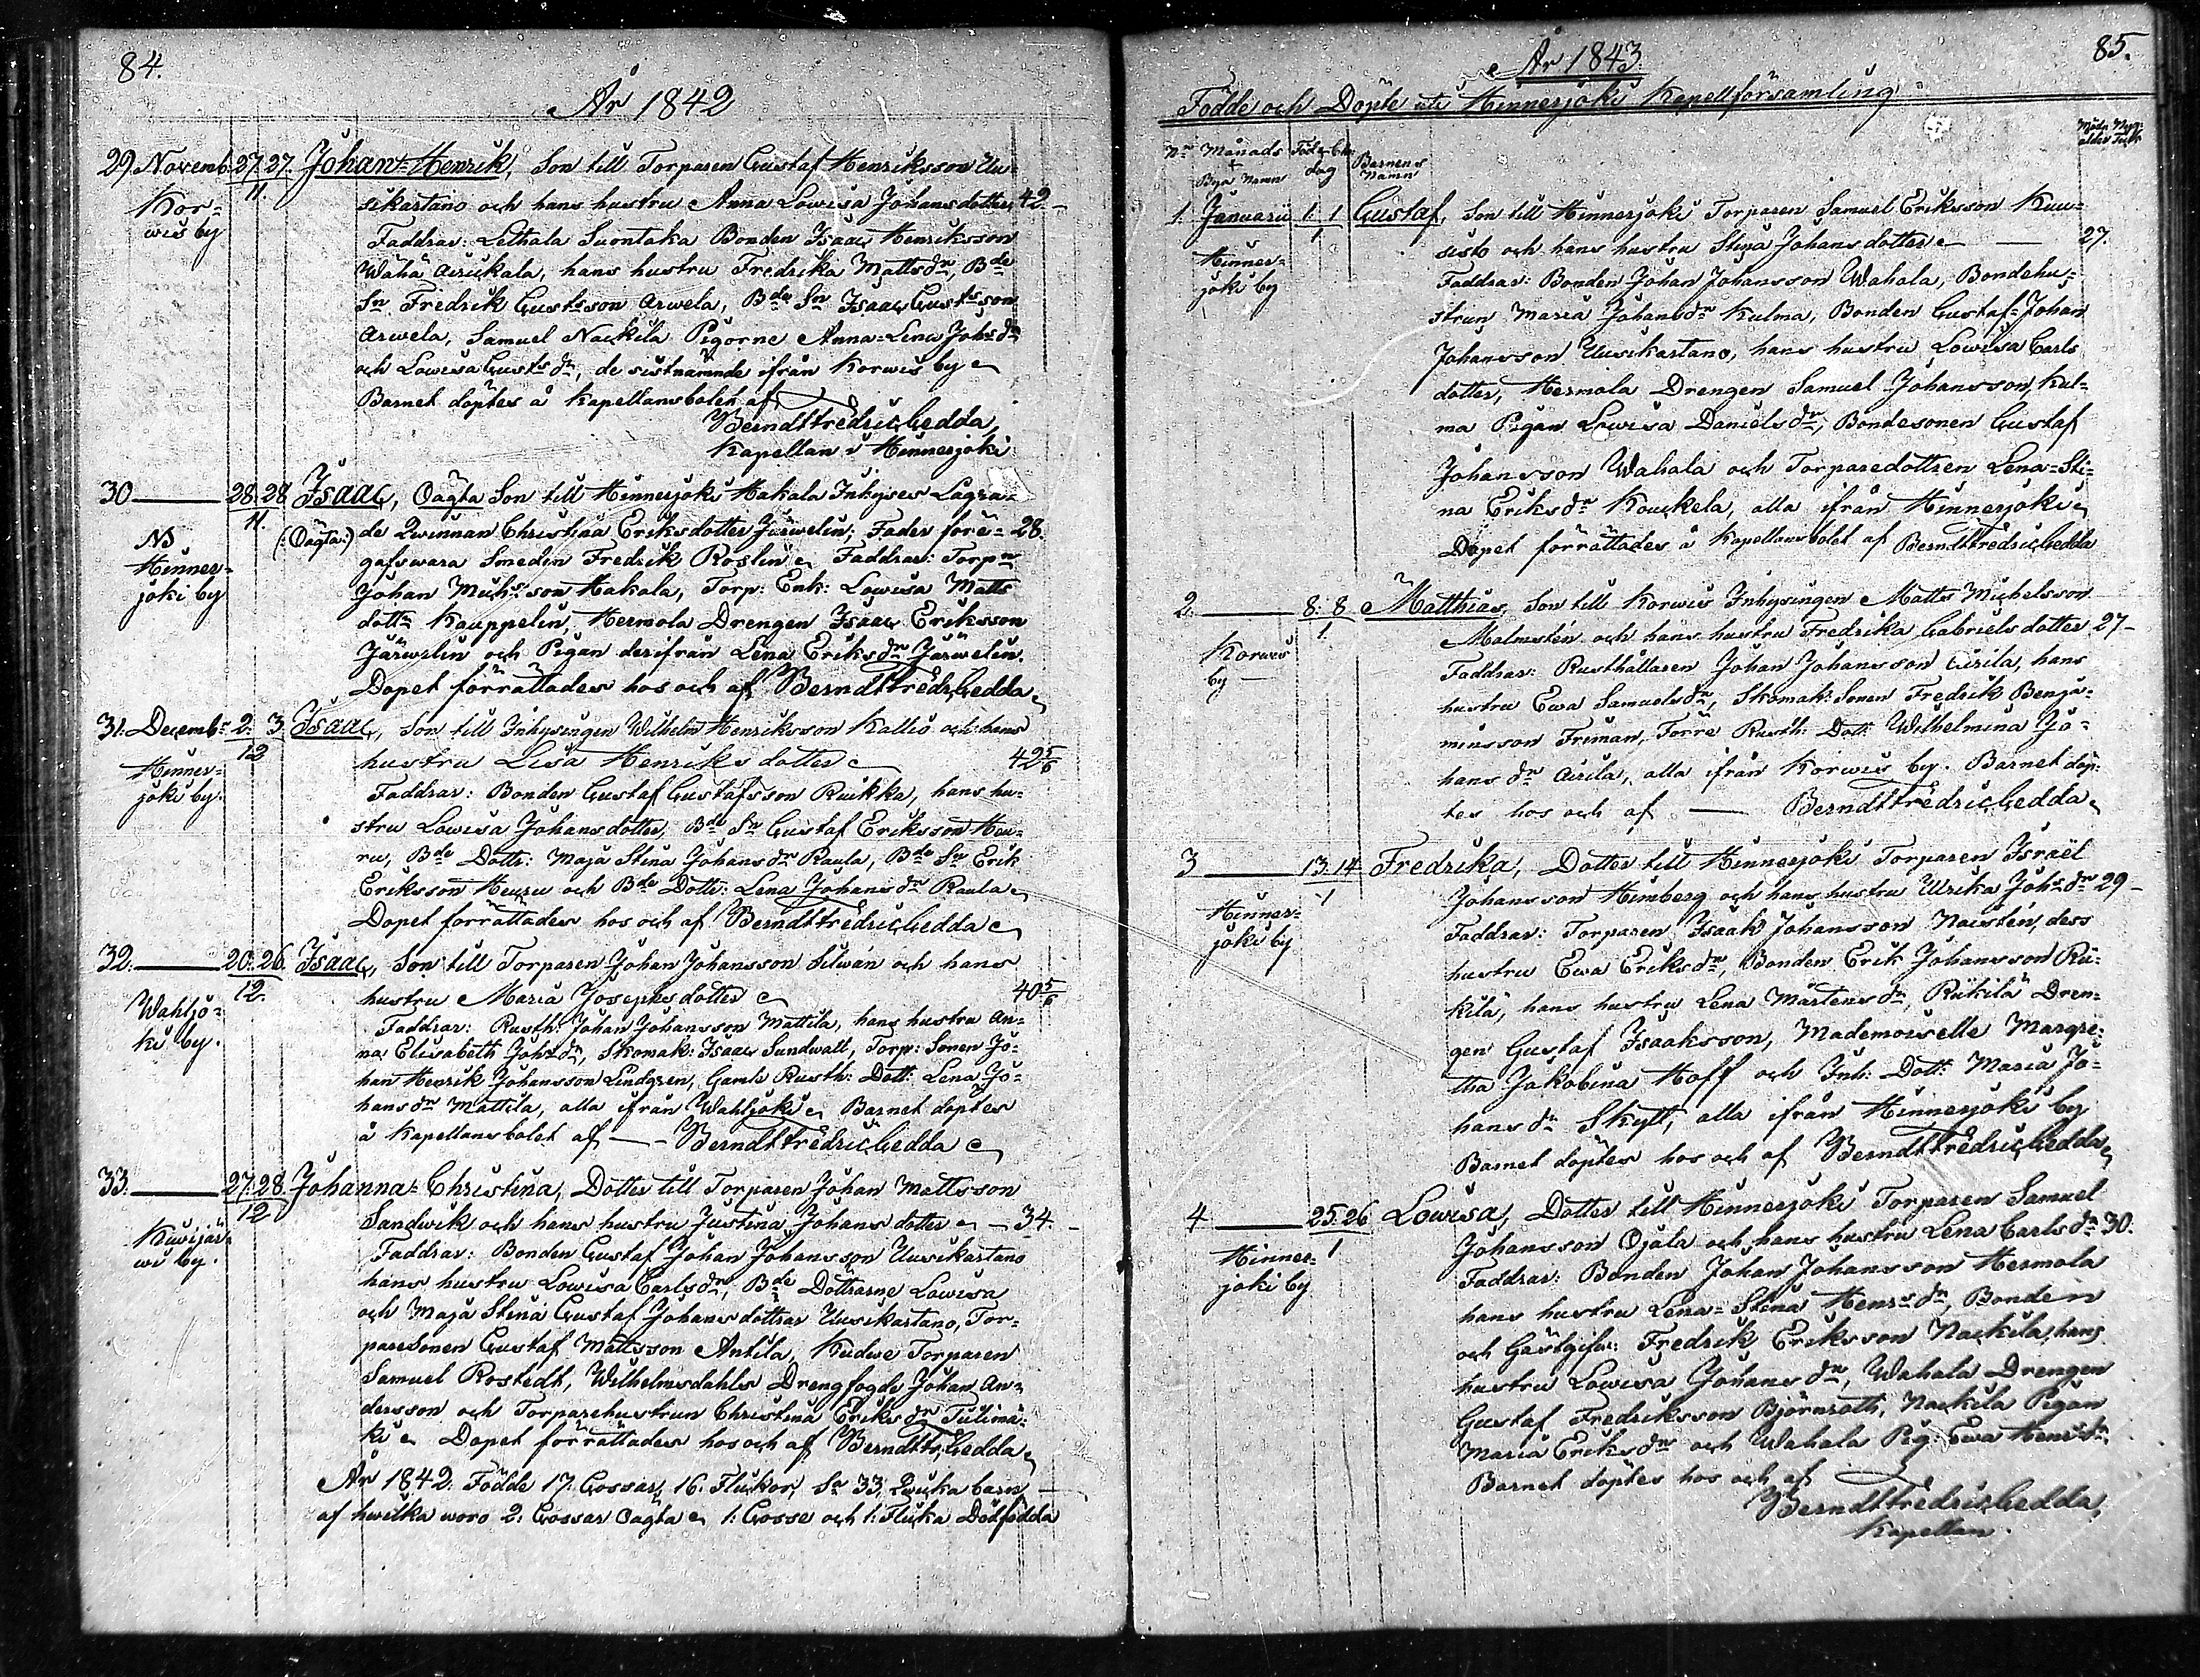 84.
År 1842
29. Novemb. 27. 27. Johan-Henrik, Son till Torparen Gustaf Henriksson Uu-
11.
Kor-
wis by
sikartano och hans hustru Anna Lowisa Johansdotter 42.-
Faddrar: Lethala Suontaka Bonden Isaac Henriksson
Wähä Airikkala, hans hustru Fredrika Mattsdr, Bde
Sn Fredrik Gustsson Arwela, Bde Sn Isaac Gustsson
Arwela, Samuel Nackila Pigorne Anna-Lena Johsdr
och Lowisa Gustsdr, de sistnämnde ifrån Korwis by
Barnet döptes å Kapellansbolet af
Berndt Fredric Gedda,
Kapellan i Hinnerjoki
30 ——— 28. 28. Isaac, Oägta Son till Hinnerjoki Hakala Inhyses Lägra-
11.
NB
Hinner-
joki by
(:Oägta:) de Qwinnan Christina Eriksdotter Järwelin; Fader före- 28.
gafs wara Smeden Fredrik Roslin. Faddrar: Torpn
Johan Michsson Hakala, Torp: Enk: Lowisa Matts
dottr Kauppelin, Hermola Drengen Isaac Eriksson
Järwelin och Pigan derifrån Lena Eriksdr Järwelin.
Dopet förrättades hos och af Berndt Fredr. Gedda
31. Decembr 2. 3. Isaac, Son till Inhysingen Wilhelm Henriksson Kallio och hans
12
Hinner-
joki by.
hustru Lisa Henriksdotter 42 5/6
Faddrar: Bonden Gustaf Gustafsson Ruikka, hans hu-
stru Lowisa Johansdotter, Bde Sn Gustaf Eriksson Heu-
ru, Bde Dottr: Maja Stina Johansdr Raula, Bde Sn Erik
Eriksson Heuru och Bde Dottr: Lena Johansdr Raula
Dopet förrättades hos och af Berndt Fredric Gedda
32. ——— 20. 26. Isaac, Son till Torparen Johan Johansson Silwän och hans
12.
Wahljo-
ki by.
hustru Maria Josephsdotter 40 5/6
Faddrar: Rusth: Johan Johansson Mattila, hans hustru An-
na Elisabeth Johsdr, Skomak: Isaac Sundwall, Torp: Sonen Jo-
han Henrik Johansson Lindgren, Gamle Rusth: Dott: Lena Jo-
hansdr Mattila, alla ifrån Wahljoki Barnet döptes
å Kapellansbolet af — Berndt Fredric Gedda
33. ——— 27. 28. Johanna-Christina, Dotter till Torparen Johan Mattsson
12
Kuwijär-
wi by.
Sandwik och hans hustru Justina Johansdotter — 34.-
Faddrar: Bonden Gustaf Johan Johansson Uusikartano
hans hustru Lowisa Carlsdr, Bde Döttrarne Lowisa
och Maja Stina Gustaf Johansdöttrar Uusikartano, Tor-
paresonen Gustaf Mattsson Antila, Kudwe Torparen
Samuel Rostedt, Wilhelmsdahls Drengfogde Johan An-
dersson och Torparehustrun Christina Eriksdr Tulimä-
ki Dopet förrättades hos och af Berndt Fr. Gedda
År 1842. Födde 17. Gossar, 16. Flickor, Sa 33. Qwicka barn
af hwilka woro 2: Gossar Oägta 1: Gosse och 1: Flicka Dödfödda
85.
År 1843.
Födde och Döpte uti Hinnerjoki Kapellförsamling
No Månads Föd. Chr. Barnens
Bya Namn dag Namn
1. Januarii 1. 1 Gustaf, Son till Hinnerjoki Torparen Samuel Eriksson Kuu-
1
Hinner-
joki by
sisto och hans hustru Stina Johansdotter — 27.
Faddrar: Bonden Johan Johansson Wahala, Bondehu-
strun Maria Johansdr Kulma, Bonden Gustaf-Johan
Johansson Uusikartano, hans hustru Lowisa Carls
dotter, Hermola Drengen Samuel Johansson, Kul-
ma Pigan Lowisa Danielsdr, Bondesonen Gustaf
Johansson Wahala och Torparedottren Lena-Sti-
na Eriksdr Kouckela, alla ifrån Hinnerjoki
Dopet förrättades å Kapellansbolet af Berndt Fredric Gedda
2. ——— 8. 8 Matthias, Son till Korwis Inhysingen Matts Michelsson
1.
Korwis
by
Malmstén och hans hustru Fredrika Gabrielsdotter 27-
Faddrar: Rusthållaren Johan Johansson Airila, hans
hustru Ewa Samuelsdr, Skomak: Sonen Fredrik Benja-
minsson Friman, Förre Rusth: Dott: Wilhelmina Jo-
hansdr Airila, alla ifrån Korwis by. Barnet döp-
tes hos och af — Berndt Fredric Gedda
3 ——— 13. 14 Fredrika, Dotter till Hinnerjoki Torparen Israël
1
Hinner-
joki by
Johansson Himberg och hans hustru Ulrika Johsdr 29-
Faddrar: Torparen Isaak Johansson Naistén, dess
hustru Ewa Eriksdr, Bonden Erik Johansson Rii-
kilä, hans hustru Lena Mårtensdr, Riikilä Dren-
gen Gustaf Isaaksson, Mademoiselle Margre-
tha Jakobina Hoff och Inh: Dott: Maria Jo-
hansdr Skytt, alla ifrån Hinnerjoki by
Barnet döptes hos och af Berndt Fredric Gedda
4 ——— 25. 26 Lowisa, Dotter till Hinnerjoki Torparen Samuel
1
Hinner-
joki by
Johansson Ojala och hans hustru Lena Carlsdr 30.
Faddrar: Bonden Johan Johansson Hermola
hans hustru Lena-Stina Henrsdr, Bonden
och Gästgifv: Fredrik Eriksson Nackila, hans
hustru Lowisa Johansdr, Wahala Drengen
Gustaf Fredriksson Björnroth, Nackila Pigan
Maria Eriksdr och Wahala Pig. Ewa Henrsdr.
Barnet döptes hos och af
Berndt Fredric Gedda,
Kapellan.